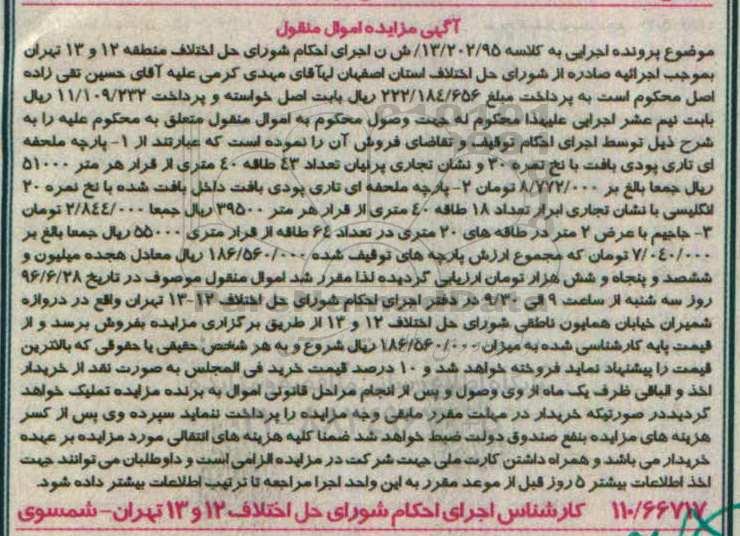 آگهی مزایده اموال منقول
موضوع پرونده اجرایی به کلاسه ۱۳/۲۰۲/۹۵/ ش ن اجرای احکام شورای حل اختلاف منطقه ۱۲ و ۱۳ تهران
بموجب اجرائیه صادره از شورای حل اختلاف استان اصفهان لهآقای مهدی کرمی علیه آقای حسین تقی زاده
اصل محکوم است به پرداخت مبلغ ۲۲۲/۱۸٤/۶۵۶ ریال بابت اصل خواسته و پرداخت ۱۱/۱۰۹/۲۳۲ ریال
بابت نیم عشر اجرایی علیهذا محکوم له جهت وصول محکوم به اموال منقول متعلق به محکوم علیه را به
شرح ذیل توسط اجرای احکام توقیف و تقاضای فروش آن را نموده است که عبارتند از ۱- پارچه ملحفه
ای تاری پودی بافت با نخ نمره ۳۰ و نشان تجاری پرنیان تعداد ٤۳ طاقه ٤۰ متری از قرار هر متر ۵۱۰۰۰
ریال جمعا بالغ بر ۸/۷۷۲/۰۰۰ تومان ۲- پارچه ملحفه ای تاری پودی بافت داخل بافت شده با نخ نمره ۲۰
انگلیسی با نشان تجاری ابرار تعداد ۱۸ طاقه ٤۰ متری از قرار هر متر ۳۹۵۰۰ ریال جمعا ۲/۸٤٤/۰۰۰ تومان
۳- جاجیم با عرض ۲ متر در طاقه های ۲۰ متری در تعداد ۶٤ طاقه از قرار متری ۵۵۰۰۰ ریال جمعا بالغ بر
۷/۰٤۰/۰۰۰ تومان که مجموع ارزش پارچه های توقیف شده ۱۸۶/۵۶۰/۰۰۰ ریال معادل هجده میلیون و
ششصد و پنجاه و شش هزار تومان ارزیابی گردیده لذا مقرر شد اموال منقول موصوف در تاریخ ۹۶/۶/۲۸
روز سه شنبه از ساعت ۹ الی ۹/۳۰ در دفتر اجرای احکام شورای حل اختلاف ۱۲-۱۳ تهران واقع در دروازه
شمیران خیابان همایون ناطقی شورای حل اختلاف ۱۲ و ۱۳ از طریق برگزاری مزایده بفروش برسد و از
قیمت پایه کارشناسی شده به میزان ۱۸۶/۵۶۰/۰۰۰ ریال شروع و به هر شخص حقیقی یا حقوقی که بالاترین
قیمت را پیشنهاد نماید فروخته خواهد شد و ۱۰ درصد قیمت خرید فی المجلس به صورت نقد از خریدار
اخذ و الباقی ظرف یک ماه از وی وصول و پس از انجام مراحل قانونی اموال به برنده مزایده تملیک خواهد
گردیددر صورتیکه خریدار در مهلت مقرر مابقی وجه مزایده را پرداخت ننماید سپرده وی پس از کسر
هزینه های مزایده بنفع صندوق دولت ضبط خواهد شد ضمنا کلیه هزینه های انتقالی مورد مزایده بر عهده
خریدار می باشد و همراه داشتن کارت ملی جهت شرکت در مزایده الزامی است و داوطلبان می توانند جهت
اخذ اطلاعات بیشتر ۵ روز قبل از موعد مقرر به این واحد اجرا مراجعه تا ترتیب اطلاعات بیشتر داده شود.
۱۱۰/۶۶۷۱۷ کارشناس اجرای احکام شورای حل اختلاف ۱۲ و ۱۳ تهران- شمسوی